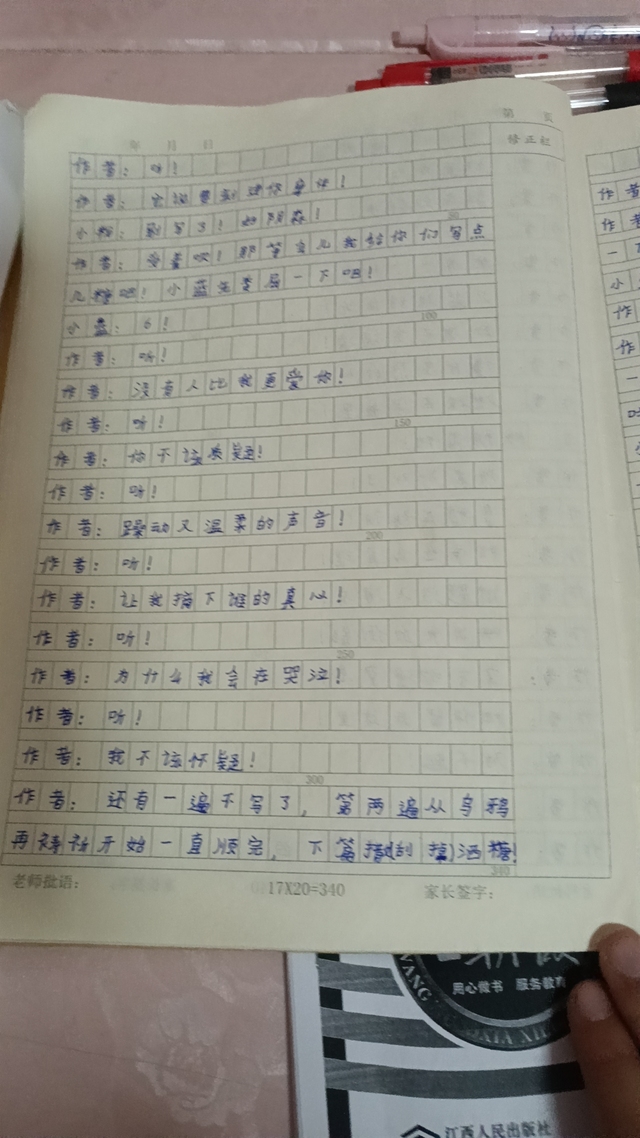 第 页
年 月 日
修正栏
作者：听！
作者：它说要刺进你身体！
小粉：别写了！好阴森！
作者：变量吹！那等会儿我给你们写点
儿糖吧！小蓝先委屈一下吧！
小蓝：6！
100
作者：听！
作者：没有人比我更爱你！
作者：听！
150
作者：你不该质疑！
作者：听！
作者：躁动又温柔的声音！
200
作者：听！
作者：让我摘下谁的真心！
作者：听！
250
作者：为什么我会在哭泣！
作者：听！
作者：我不该怀疑！
300
作者：还有一遍不写了，第两遍从乌鸦
再 开始一直顺完，下篇 (刮掉)洒糖！
340
老师批语：
17X20=340
家长签字：
作者
作者
一
小
作
作
一
用心做书 服务教育
江西人民出版社